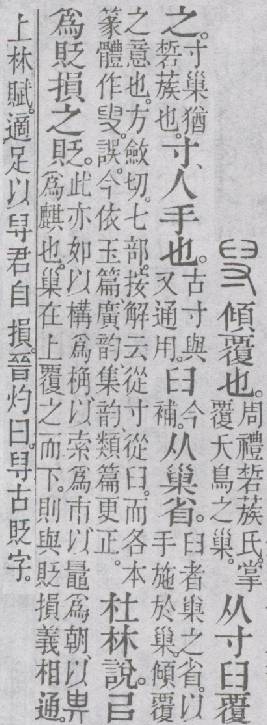 傾覆也。周禮硩蔟氏。掌覆夭鳥之巢。从寸臼覆
之。寸巢猶硩蔟也。寸、人手也。古寸與又通用。臼今補。从巢省。臼者巢之省。以手施於巢。傾覆
之意也。方斂切。七部。按解云從寸從臼。而各本篆體作叟。誤。今依玉篇廣韵集韵類篇更正。杜林說。㠯
爲貶損之貶。此亦如以構爲桷以索爲市以鼂爲朝以𢌿爲麒也。巢在上覆之而下。則與貶損義相通。
上林賦。適足以㝵君自損。晉灼曰。㝵古貶字。